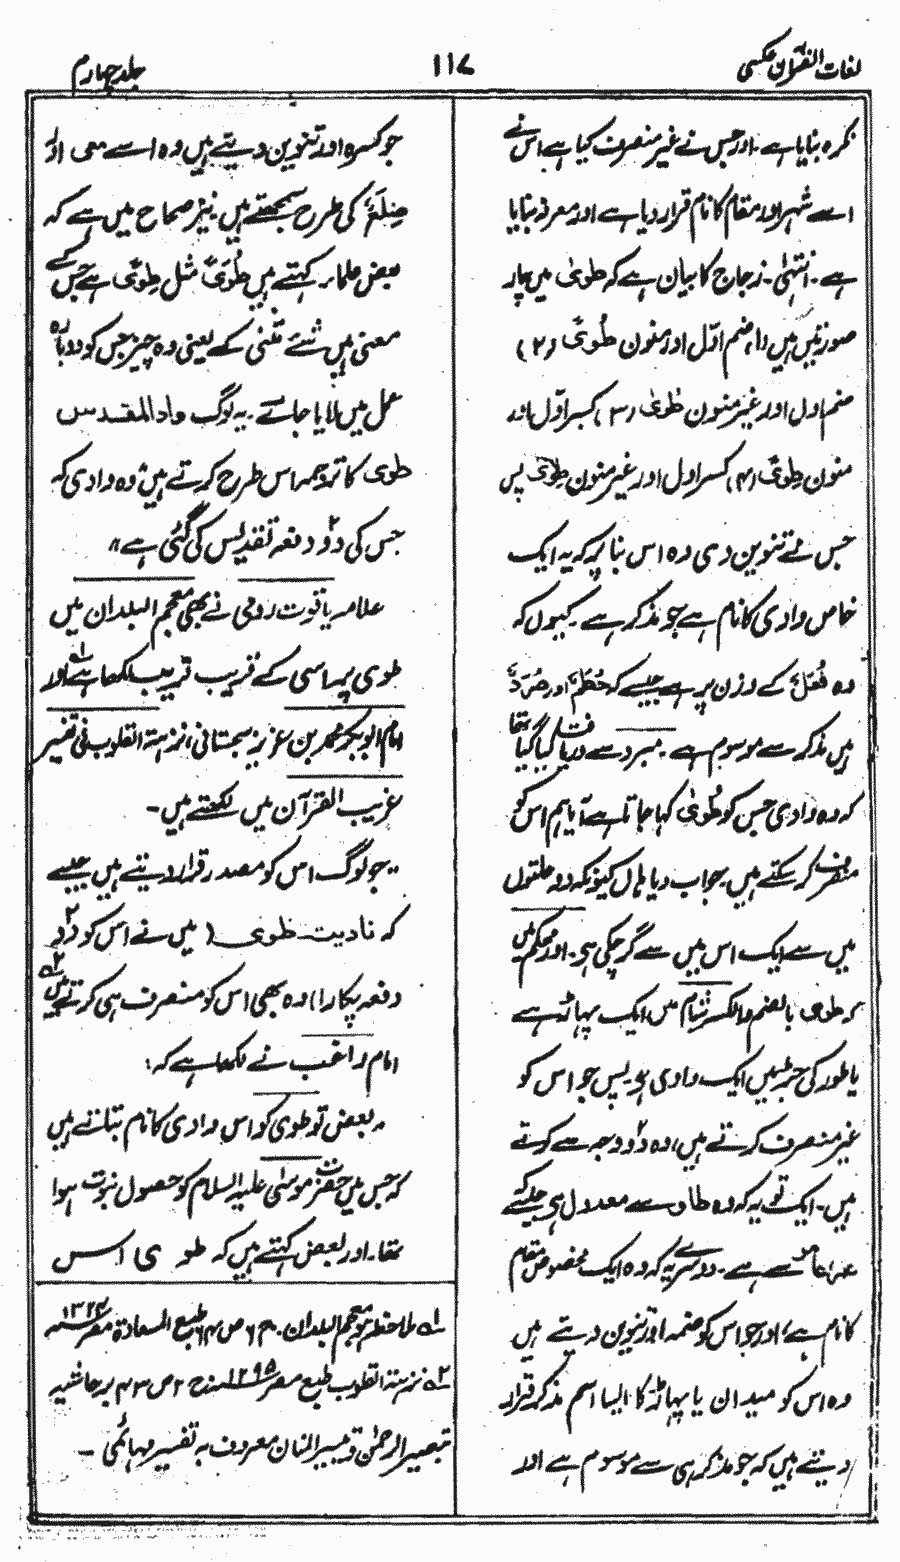 لغات القرآن عکسی
۱۱۷
جلد چہارم
نکرہ بنایا ہے۔ اور جس نے غیر منصرف کیا ہے اس نے
اسے شہر اور مقام کا نام قرار دیا ہے اور معرفہ بنایا
ہے۔ انتہیٰ۔ زجاج کا بیان ہے کہ طویٰ میں چار
صورتیں ہیں (۱) ضم اوّل اور منون طُوًی (۲)
ضم اول اور غیر منون طُویٰ (۳) کسر اوّل مانند
منون طِوًی (۴) کسر اول اور غیر منون طِویٰ پس
جس نے تنوین دی وہ اس بنا پر کہ یہ ایک
خاص وادی کا نام ہے جو مذکر ہے۔ کیوں کہ
وہ فُعَلٌ کے وزن پر ہے جیسے کہ حُطَمٌ اور صُرَدٌ
ہیں مذکر سے موسوم ہے۔ مبرد سے دریافت کیا گیا تھا
کہ وہ وادی جس کو طُویٰ کہا جاتا ہے آیا ہم اس کو
منصرف کر سکتے ہیں۔ جواب دیا ہاں کیونکہ دو علتوں
میں سے ایک اس میں سے گر چکی ہے۔ اور محکم میں
ہے طوی بالضم والکسر شام میں ایک پہاڑ ہے
یا طور کی جڑ میں ایک وادی ہے پس جو اس کو
غیر منصرف کرتے ہیں، وہ دو۲ وجہ سے کرتے
ہیں۔ ایک تو یہ کہ وہ طاوٍ سے معدول ہے جیسے کہ
عمر عامر سے ہے۔ دوسرے یہ کہ وہ ایک مخصوص مقام
کا نام ہے، اور جو اس کو ضمہ اور تنوین دیتے ہیں
وہ اس کو میدان یا پہاڑ کا ایسا اسم مذکر قرار
دیتے ہیں کہ جو مذکر ہی سے موسوم ہے اور
جو کسرہ اور تنوین دیتے ہیں وہ اسے معی اور
ضِلَعٌ کی طرح سمجھتے ہیں۔ نیز صحاح میں ہے کہ
بعض علماء کہتے ہیں طُوًی مثل طِوًی ہے جس کے
معنی ہیں شئے مثنی کے یعنی وہ چیز جس کو دوبارہ
عمل میں لایا جائے۔ یہ لوگ واد المقدس
طوی کا ترجمہ اس طرح کرتے ہیں "وہ وادی کہ
جس کی دو۲ دفعہ تقدیس کی گئی ہے"
علامہ یاقوت رومی نے بھی معجم البلدان میں
طوی پر اسی کے قریب قریب لکھا ہے لہ اور
امام ابوبکر محمد بن عزیز سجستانی، نزہتہ القلوب فی تفسیر
غریب القرآن میں لکھتے ہیں۔
"جو لوگ اس کو مصدر قرار دیتے ہیں جیسے
کہ نادیت طوی (میں نے اس کو دو۲
دفعہ پکارا) وہ بھی اس کو منصرف ہی کرتے ہیں ۲ہ
امام راغب نے لکھا ہے کہ:
"بعض تو طوی کو اس وادی کا نام بتاتے ہیں
کہ جس میں حضرت موسٰی علیہ السلام کو حصول نبوت ہوا
تھا۔ اور بعض کہتے ہیں کہ طوی اس
۱ہ ملاحظہ ہو معجم البلدان۔ ج ۶ ص ۶۴ طبع السعادۃ مصر ۱۳۲۴ھ
۲ہ نزہتہ القلوب طبع مصر ۱۲۹۵ھ ج ۲ ص ۴۳ بر حاشیہ
تبصیر الرحمٰن و تیسیر المنان معروف بہ تفسیر مہائمی۔